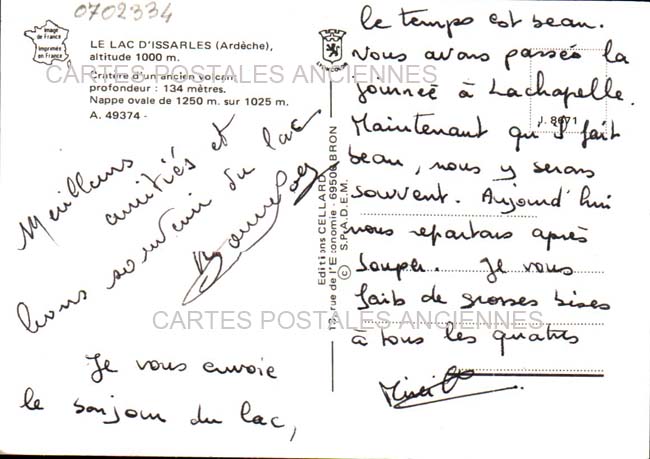 0702334
Image de France
Imprimée en France
LE LAC D'ISSARLES (Ardèche),
altitude 1000 m.
Cratère d'un ancien volcan
profondeur : 134 mètres.
Nappe ovale de 1250 m. sur 1025 m.
A. 49374 -
CARTES POSTALES ANCIENNES
Meilleurs
amitiés et
bons souvenir du lac
Je vous envoie
le bonjour du lac,
Editions CELLARD
13, rue de l'Economie - 69500 BRON
© S.P.A.D.E.M.
J. 8671
le temps est beau.
Nous avons passés la
journeé à Lachapelle.
Maintenant qu'il fait
beau, nous y serons
souvent. Aujourd'hui
nous repartons après
souper. Je vous
fait de grosses bises
à tous les quatres
CARTES POSTALES ANCIENNES